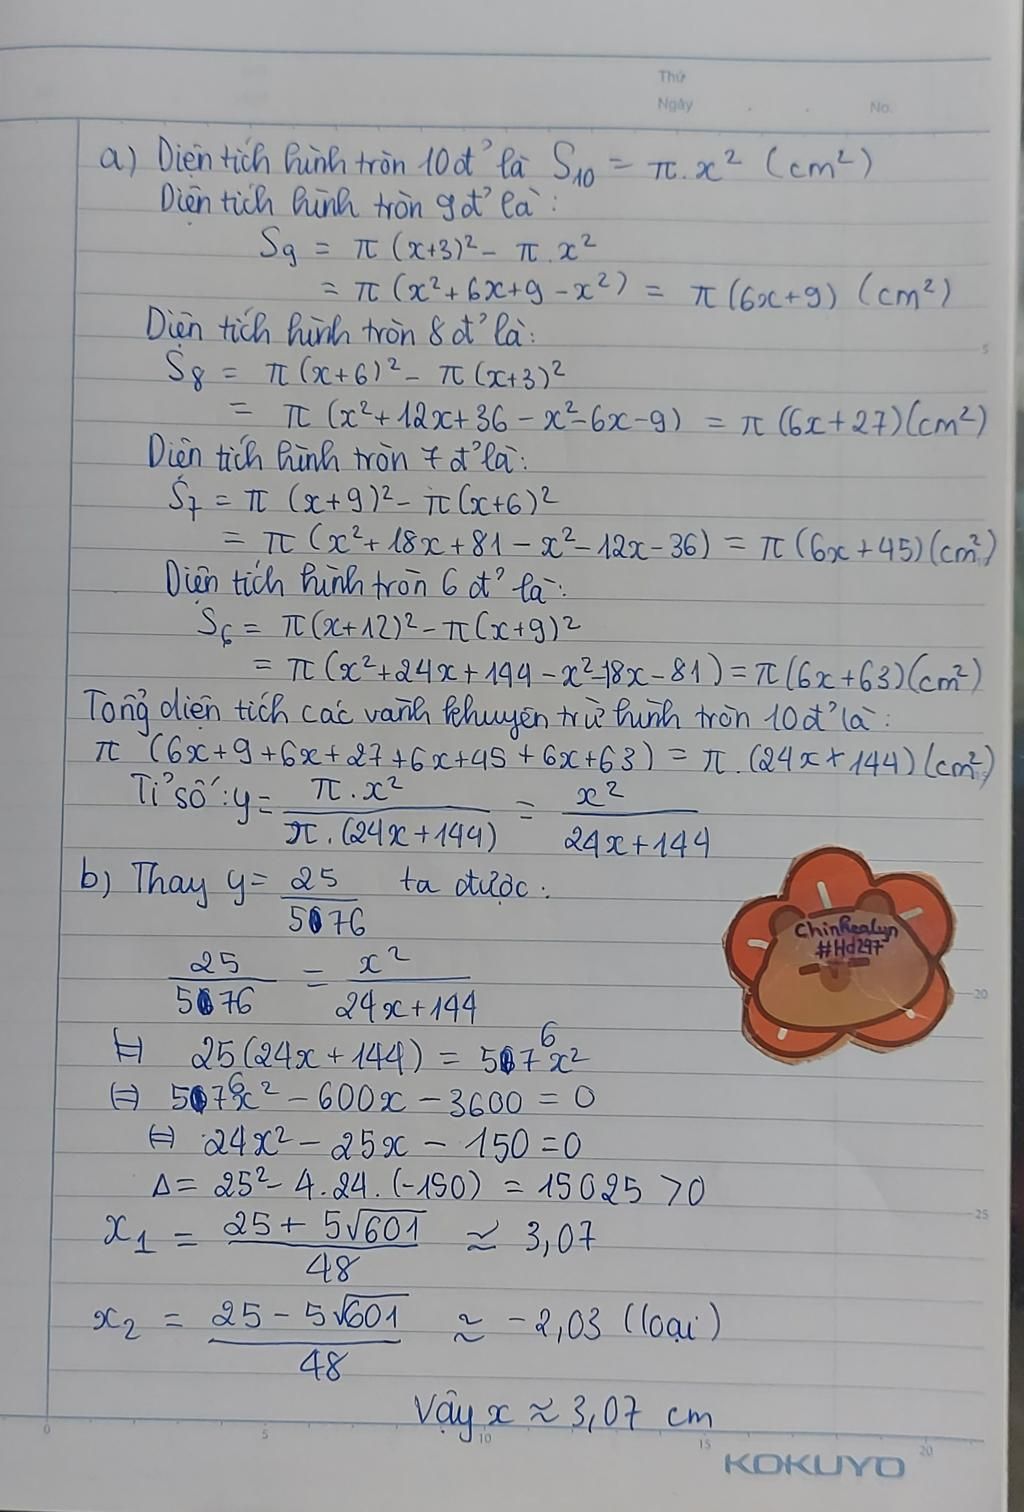 Thứ
Ngày . . No.
a) Diện tích hình tròn 10đ' là S₁₀ = π.x² (cm²)
Diện tích hình tròn 9đ' là:
S₉ = π (x+3)² - π.x²
= π (x²+6x+9-x²) = π(6x+9) (cm²)
Diện tích hình tròn 8đ' là:
S₈ = π(x+6)² - π(x+3)²
= π (x²+12x+36-x²-6x-9) = π(6x+27)(cm²)
Diện tích hình tròn 7đ' là:
S₇ = π (x+9)² - π(x+6)²
= π (x²+18x+81-x²-12x-36) = π(6x+45)(cm²)
Diện tích hình tròn 6đ' là:
S₆ = π(x+12)² - π(x+9)²
= π(x²+24x+144-x²-18x-81) = π(6x+63)(cm²)
Tổng diện tích các vành khuyên trừ hình tròn 10đ' là:
π (6x+9+6x+27+6x+45+6x+63) = π.(24x+144)(cm²)
Tỉ số: y = π.x² / π.(24x+144) = x² / 24x+144
b) Thay y = 25/576 ta được:
25/576 = x² / 24x+144
⇔ 25(24x+144) = 576x²
⇔ 576x² - 600x - 3600 = 0
⇔ 24x² - 25x - 150 = 0
Δ = 25² - 4.24.(-150) = 15025 > 0
x₁ = 25 + 5√601 / 48 ≈ 3,07
x₂ = 25 - 5√601 / 48 ≈ -2,03 (loại)
Vậy x ≈ 3,07 cm
ChinRealyn
#Hd297
5
20
25
0 5 10 15 20
KOKUYO